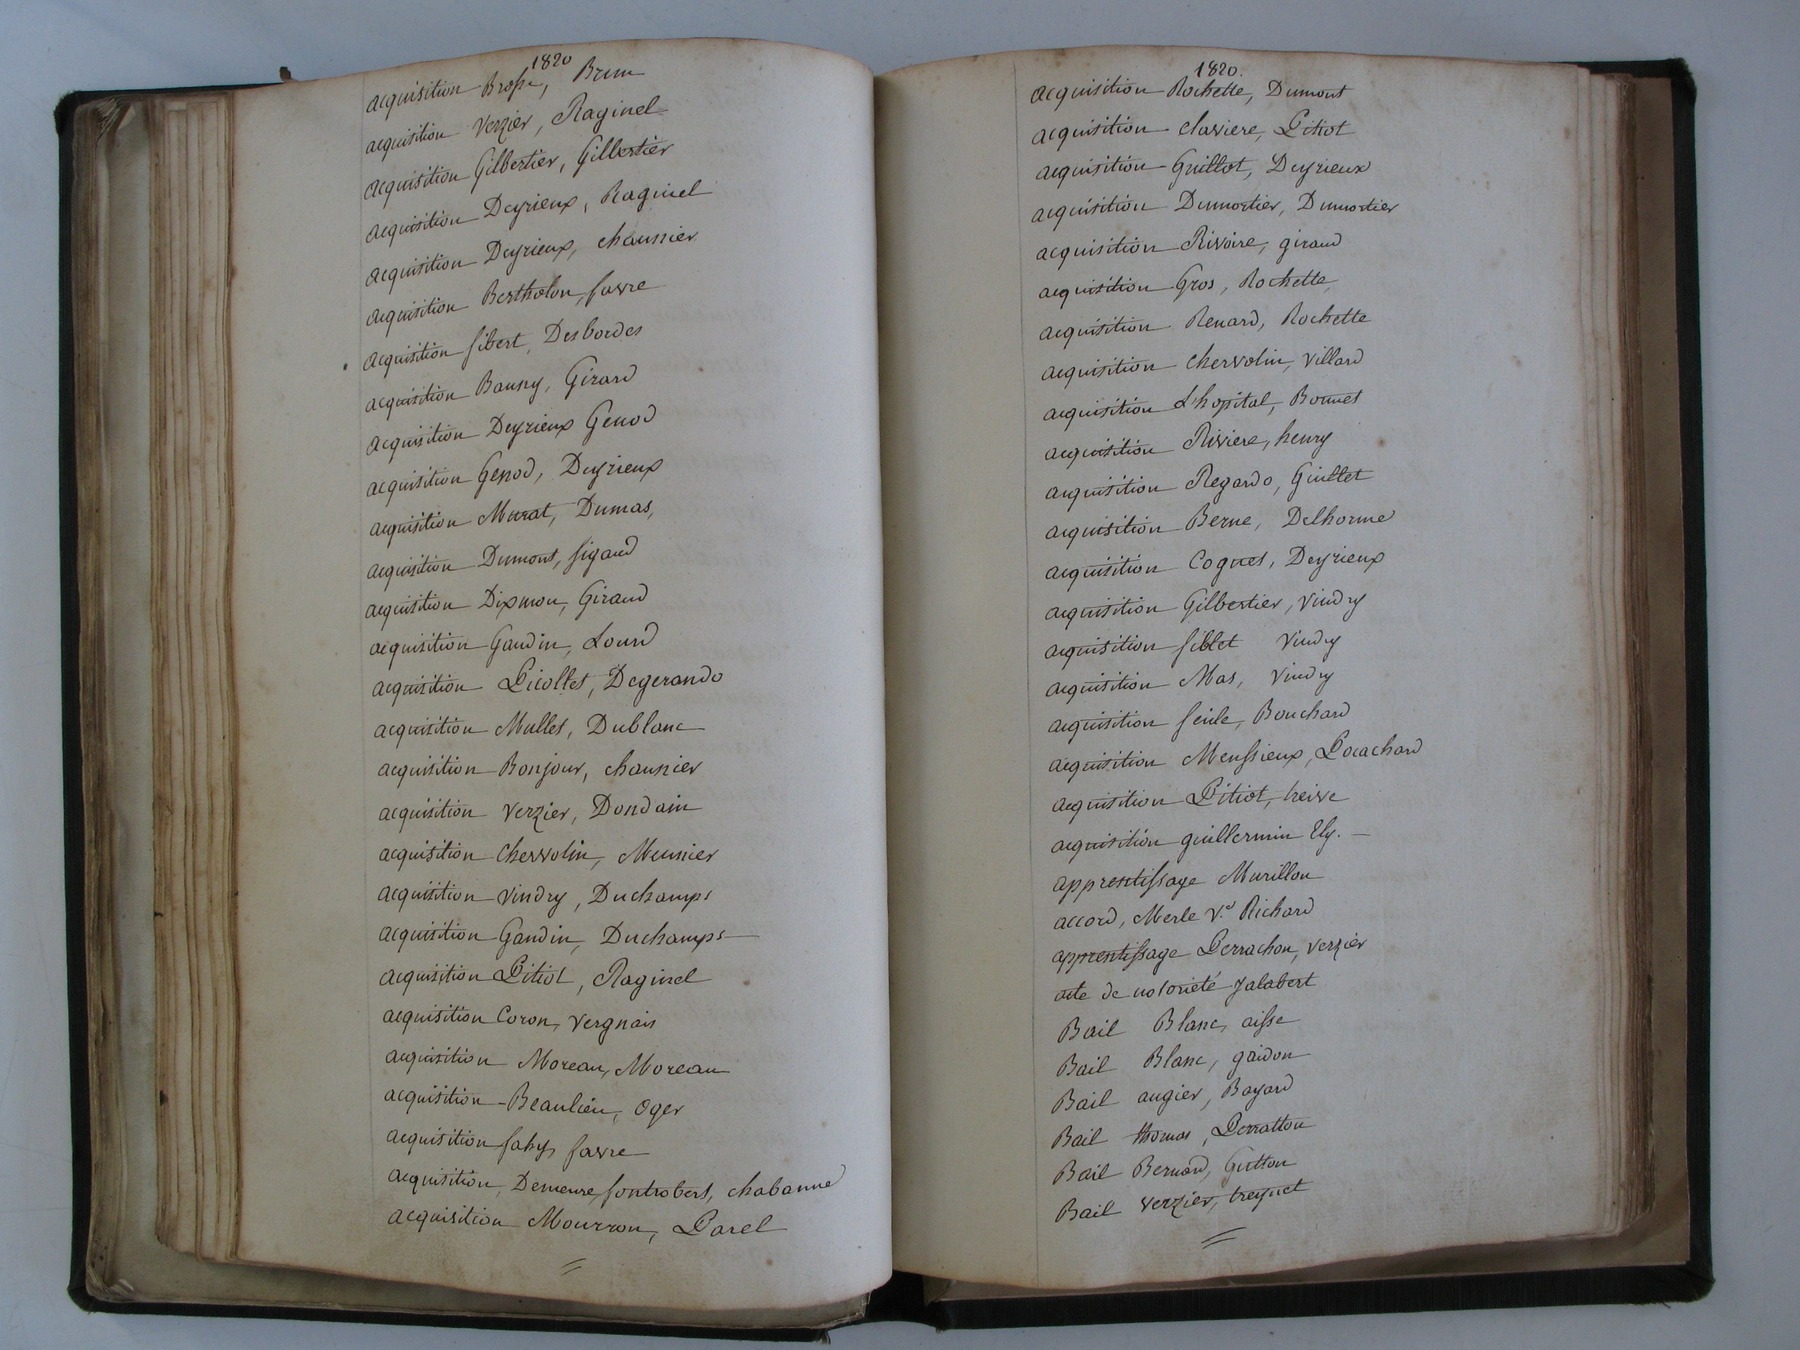 1820
acquisition Brosse, Brun
acquisition Verzier, Raginel
acquisition Gilbertier, Gilbertier
acquisition Deyrieux, Raginel
acquisition Deyrieux, chaunier
acquisition Bertholon, favre
acquisition Sibert, Desbordes
acquisition Bauny, Girard
acquisition Deyrieux Genod
acquisition Genod, Deyrieux
acquisition Murat, Dumas,
acquisition Dumont, Sigaud
acquisition Dixmon, Giraud
acquisition Gaudin, Lourd
acquisition Picollet, Degerando
acquisition Mullet, Dublanc
acquisition Bonjour, chaunier
acquisition Verzier, Dondain
acquisition Chervolin, Meunier
acquisition Vindry, Duchamps
acquisition Gaudin, Duchamps
acquisition Pitiot, Raginel
acquisition Coron, Vergnais
acquisition Moreau, Moreau
acquisition Beaulieu, Oger
acquisition fahy, favre
acquisition, Demeure, fontrobert, chabanne
acquisition Mourron, Parel
1820.
acquisition Rochette, Dumont
acquisition claviere, Pitiot
acquisition Guillot, Deyrieux
acquisition Dumortier, Dumortier
acquisition Rivoire, giraud
acquisition Gros, Rochette
acquisition Renard, Rochette
acquisition Chervolin, Villard
acquisition L'hopital, Bonnet
acquisition Riviere, henry
acquisition Regardo, Guillet
acquisition Berne, Delhorme
acquisition Cognet, Deyrieux
acquisition Gilbertier, Vindry
acquisition Siblet Vindry
acquisition Mas, Vindry
acquisition Seule, Bouchard
acquisition Menssieux, Pocachard
acquisition Pitiot, treive
acquisition guillermin Ely.
apprentissage Murillon
accord, Merle Ve Richard
apprentissage Perrachon, Verzier
acte de notoriété Jalabert
Bail Blanc, aisse
Bail Blanc, gaidon
Bail augier, Bayard
Bail thomas, Perratton
Bail Bernard, Gutton
Bail Verzier, treynet